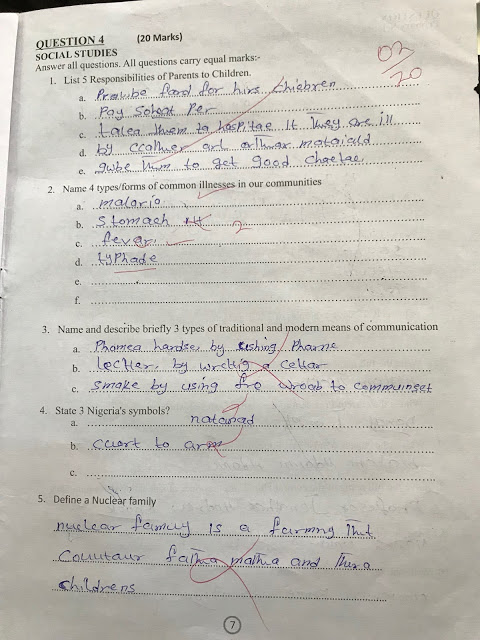 QUESTION 4 (20 Marks)
SOCIAL STUDIES
Answer all questions. All questions carry equal marks:-
02/20
1. List 5 Responsibilities of Parents to Children.
a. Prowbe food for hirs Chiebren
b. Pay Per
c. talea them to hospitae It they are ill
d. by ccalher art
e. gwbe them to get good
2. Name 4 types/forms of common illnesses in our communities
a. malario
b. Stomach
c. fever
2
d. tyPhade
e.
f.
3. Name and describe briefly 3 types of traditional and modern means of communication
a. Phomea hardse, by ushing Pharne
b. by
c. Smoke by using to
4. State 3 Nigeria's symbols?
a. natanad
b. cuort to arm
c.
5. Define a Nuclear family
nuclear famuy is a farmng that
Coututaur fathia mathia and thira
Childrens
7